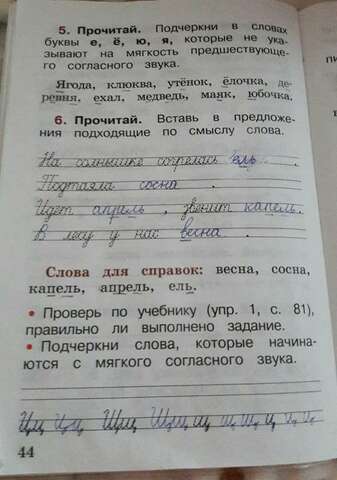 5. Прочитай. Подчеркни в словах
буквы е, ё, ю, я, которые не ука-
зывают на мягкость предшествующе-
го согласного звука.
Ягода, клюква, утёнок, ёлочка, де-
ревня, ехал, медведь, маяк, юбочка.
6. Прочитай. Вставь в предложе-
ния подходящие по смыслу слова.
На солнышке согрелась ель.
Подтаяла сосна.
Идёт апрель, звенит капель.
В лесу у нас весна.
Слова для справок: весна, сосна,
капель, апрель, ель.
• Проверь по учебнику (упр. 1, с. 81),
правильно ли выполнено задание.
• Подчеркни слова, которые начина-
ются с мягкого согласного звука.
44